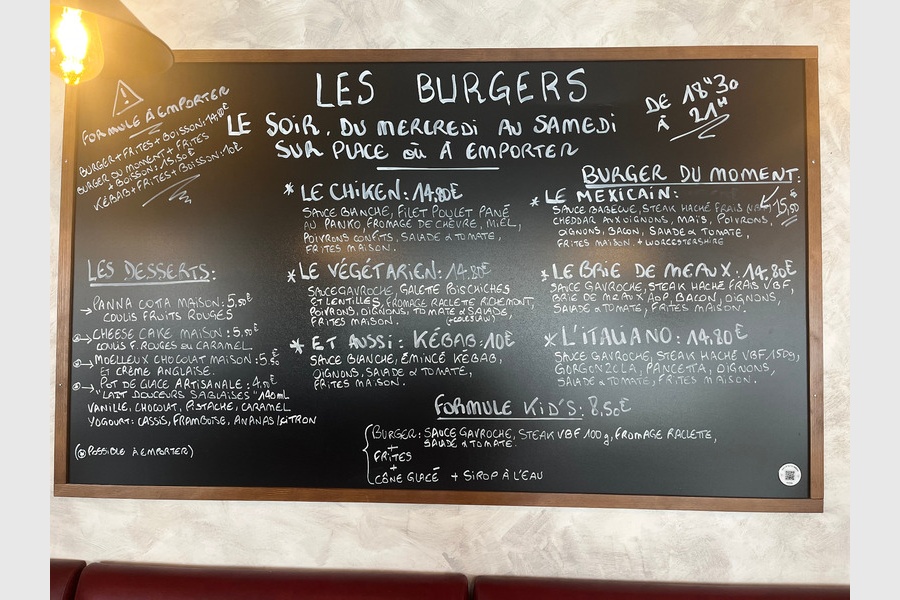 LES BURGERS
DE 18H30
À 21H
LE SOIR, DU MERCREDI AU SAMEDI
SUR PLACE OÙ À EMPORTER
FORMULE À EMPORTER
BURGER+FRITES+BOISSON: 14,00€
BURGER DU MOMENT+FRITES
+BOISSON: 15,50€
KÉBAB+FRITES+BOISSON: 10€
LES DESSERTS:
PANNA COTTA MAISON: 5,50€
COULIS FRUITS ROUGES
CHEESE CAKE MAISON: 5,50€
COULIS F. ROUGES OU CARAMEL.
MOELLEUX CHOCOLAT MAISON: 5,50€
ET CRÈME ANGLAISE.
POT DE GLACE ARTISANALE: 4,70€
"LAIT DOUCEURS SABLAISES" 140mL
VANILLE, CHOCOLAT, PISTACHE, CARAMEL
YOGOURT: CASSIS, FRAMBOISE, ANANAS/CITRON
(POSSIBLE À EMPORTER)
* LE CHIKEN: 14,80€
SAUCE BLANCHE, FILET POULET PANÉ
AU PANKO, FROMAGE DE CHÈVRE, MIEL,
POIVRONS CONFITS, SALADE & TOMATE,
FRITES MAISON.
* LE VÉGÉTARIEN: 14,80€
SAUCE GAVROCHE, GALETTE POIS CHICHES
ET LENTILLES, FROMAGE RACLETTE RICHEMONT,
POIVRONS, OIGNONS, TOMATE & SALADE,
FRITES MAISON.
* ET AUSSI: KÉBAB: 10€
SAUCE BLANCHE, ÉMINCÉ KÉBAB,
OIGNONS, SALADE & TOMATE,
FRITES MAISON.
BURGER DU MOMENT:
* LE MEXICAIN:
15,50
SAUCE BARBECUE, STEAK HACHÉ FRAIS
CHEDDAR AUX OIGNONS, MAÏS, POIVRONS,
OIGNONS, BACON, SALADE & TOMATE,
FRITES MAISON. + WORCESTERSHIRE
* LE BRIE DE MEAUX: 14,80€
SAUCE GAVROCHE, STEAK HACHÉ FRAIS VBF,
BRIE DE MEAUX AOP, BACON, OIGNONS,
SALADE & TOMATE, FRITES MAISON.
* L'ITALIANO: 14,80€
SAUCE GAVROCHE, STEAK HACHÉ VBF 150g,
GORGONZOLA, PANCETTA, OIGNONS,
SALADE & TOMATE, FRITES MAISON.
FORMULE KID'S: 8,50€
BURGER: SAUCE GAVROCHE, STEAK VBF 100g, FROMAGE RACLETTE,
SALADE & TOMATE.
+
FRITES
+
CÔNE GLACÉ + SIROP À L'EAU